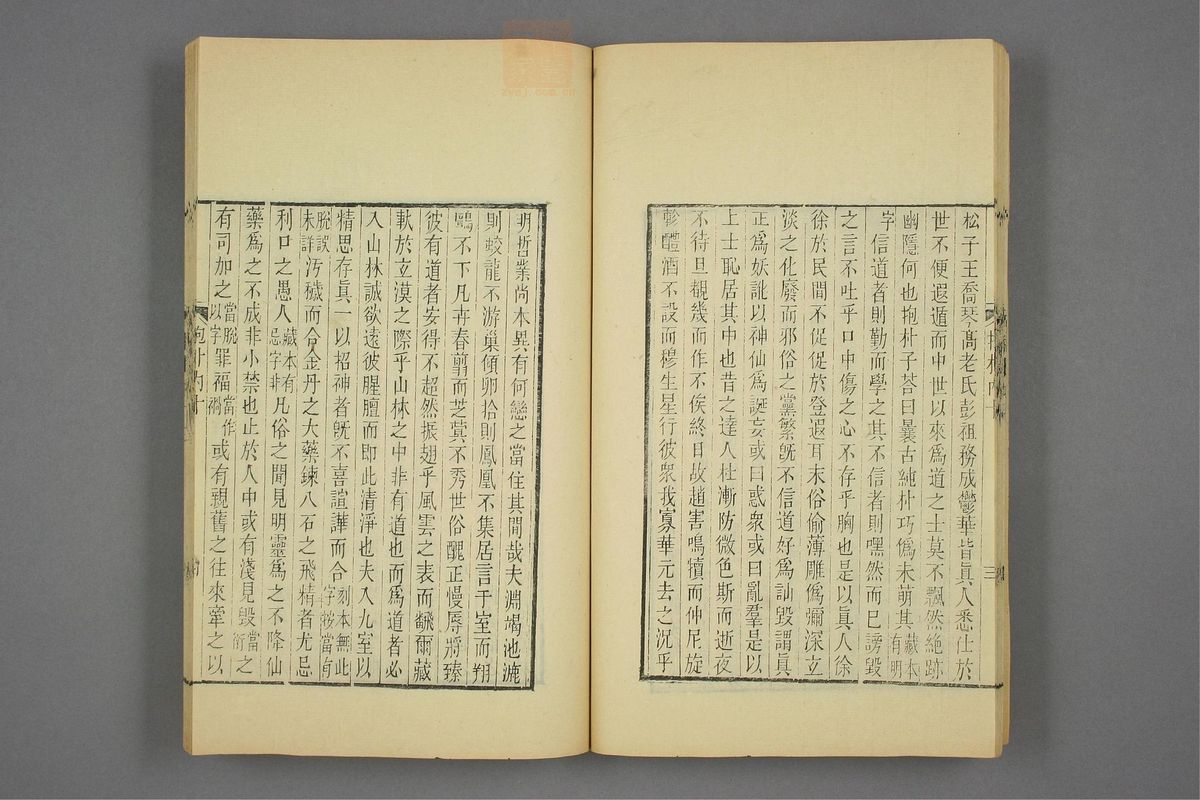 松子王喬琴髙老氏彭祖務成鬱華皆眞人悉仕於
世不便遐遁而中世以來爲道之士莫不飄然絶跡
幽隱何也抱朴子荅曰曩古純朴巧僞未萌其藏本有明
字信道者則勤而學之其不信者則嘿然而已謗毀
之言不吐乎口中傷之心不存乎胸也是以眞人徐
徐於民間不促促於登遐耳末俗偷薄雕僞彌深立
淡之化廢而邪俗之黨繁旣不信道好爲訕毀謂眞
正爲妖訛以神仙爲誕妄或曰惑衆或曰亂羣是以
上士恥居其中也昔之達人杜漸防微色斯而逝夜
不待旦覩幾而作不俟終日故趙害鳴犢而仲尼旋
軫醴酒不設而穆生星行彼衆我寡華元去之況乎
三
明哲業尚本異有何戀之當住其閒哉夫淵竭池漉
則蛟龍不游巢傾卵拾則鳳凰不集居言于室而翔
鷗不下凡卉春翦而芝蓂不秀世俗醜正慢辱將臻
彼有道者安得不超然振翅乎風雲之表而翻爾藏
軌於立漠之際乎山林之中非有道也而爲道者必
入山林誠欲遠彼腥膻而即此清淨也夫入九室以
精思存眞一以招神者旣不喜諠譁而合刻本無此字按當有
脫誤未詳汚穢而合金丹之大藥鍊八石之飛精者尤忌
利口之愚人藏本有忌字非凡俗之聞見明靈爲之不降仙
藥爲之不成非小禁也止於人中或有淺見毀當衍之
有司加之當脫以字罪福當作禍或有親舊之往來牽之以
抱朴內十